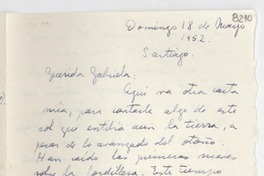 8290
Domingo 18 de Mayo
1952.
Santiago.
Querida Gabriela:
Aquí va otra carta
mía, para contarte algo de este
sol que entibia aun la tierra, a
pesar de lo avanzado del otoño.
Han caído las primeras nieves
sobre la Cordillera. Este tiempo